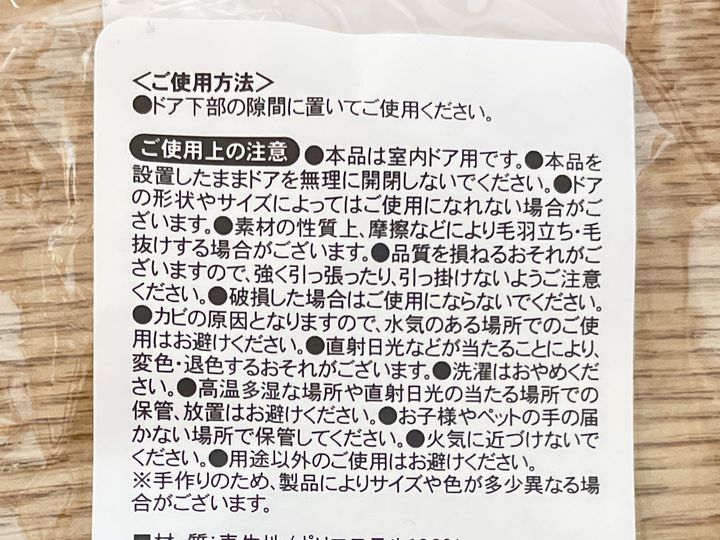 ＜ご使用方法＞
●ドア下部の隙間に置いてご使用ください。
ご使用上の注意 ●本品は室内ドア用です。●本品を
設置したままドアを無理に開閉しないでください。●ドア
の形状やサイズによってはご使用になれない場合がご
ざいます。●素材の性質上、摩擦などにより毛羽立ち・毛
抜けする場合がございます。●品質を損ねるおそれがご
ざいますので、強く引っ張ったり、引っ掛けないようご注意
ください。●破損した場合はご使用にならないでください。
●カビの原因となりますので、水気のある場所でのご使
用はお避けください。●直射日光などが当たることにより、
変色・退色するおそれがございます。●洗濯はおやめくだ
さい。●高温多湿な場所や直射日光の当たる場所での
保管、放置はお避けください。●お子様やペットの手の届
かない場所で保管してください。●火気に近づけないで
ください。●用途以外のご使用はお避けください。
※手作りのため、製品によりサイズや色が多少異なる場
合がございます。